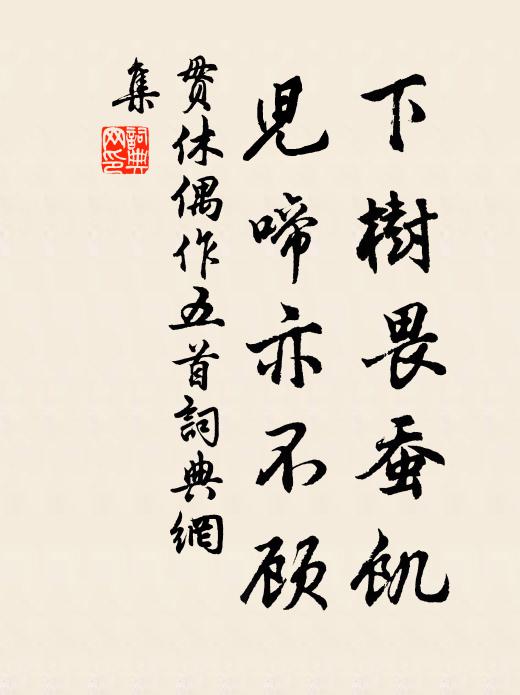 下樹畏蚕飢
兒啼亦不顾
貫休偶作五首詞典網
集
詞典
网印